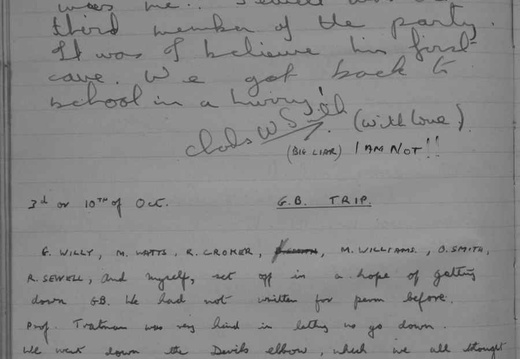 was me. Sewell was
third member of the party.
It was I believe his first
cave. We got back to
school in a hurry!
Chods W Smith (with love).
(BIG LIAR) I AM NOT!!
3rd or 10TH of Oct. G.B. TRIP.
G. WILLY, M. WATTS, R. CROKER, M. WILLIAMS, D. SMITH,
R. SEWELL, and myself, set off in a hope of getting
down GB. We had not written for perm before.
Prof. Tratman was very kind in letting us go down.
We went down the Devils elbow, which we all thought